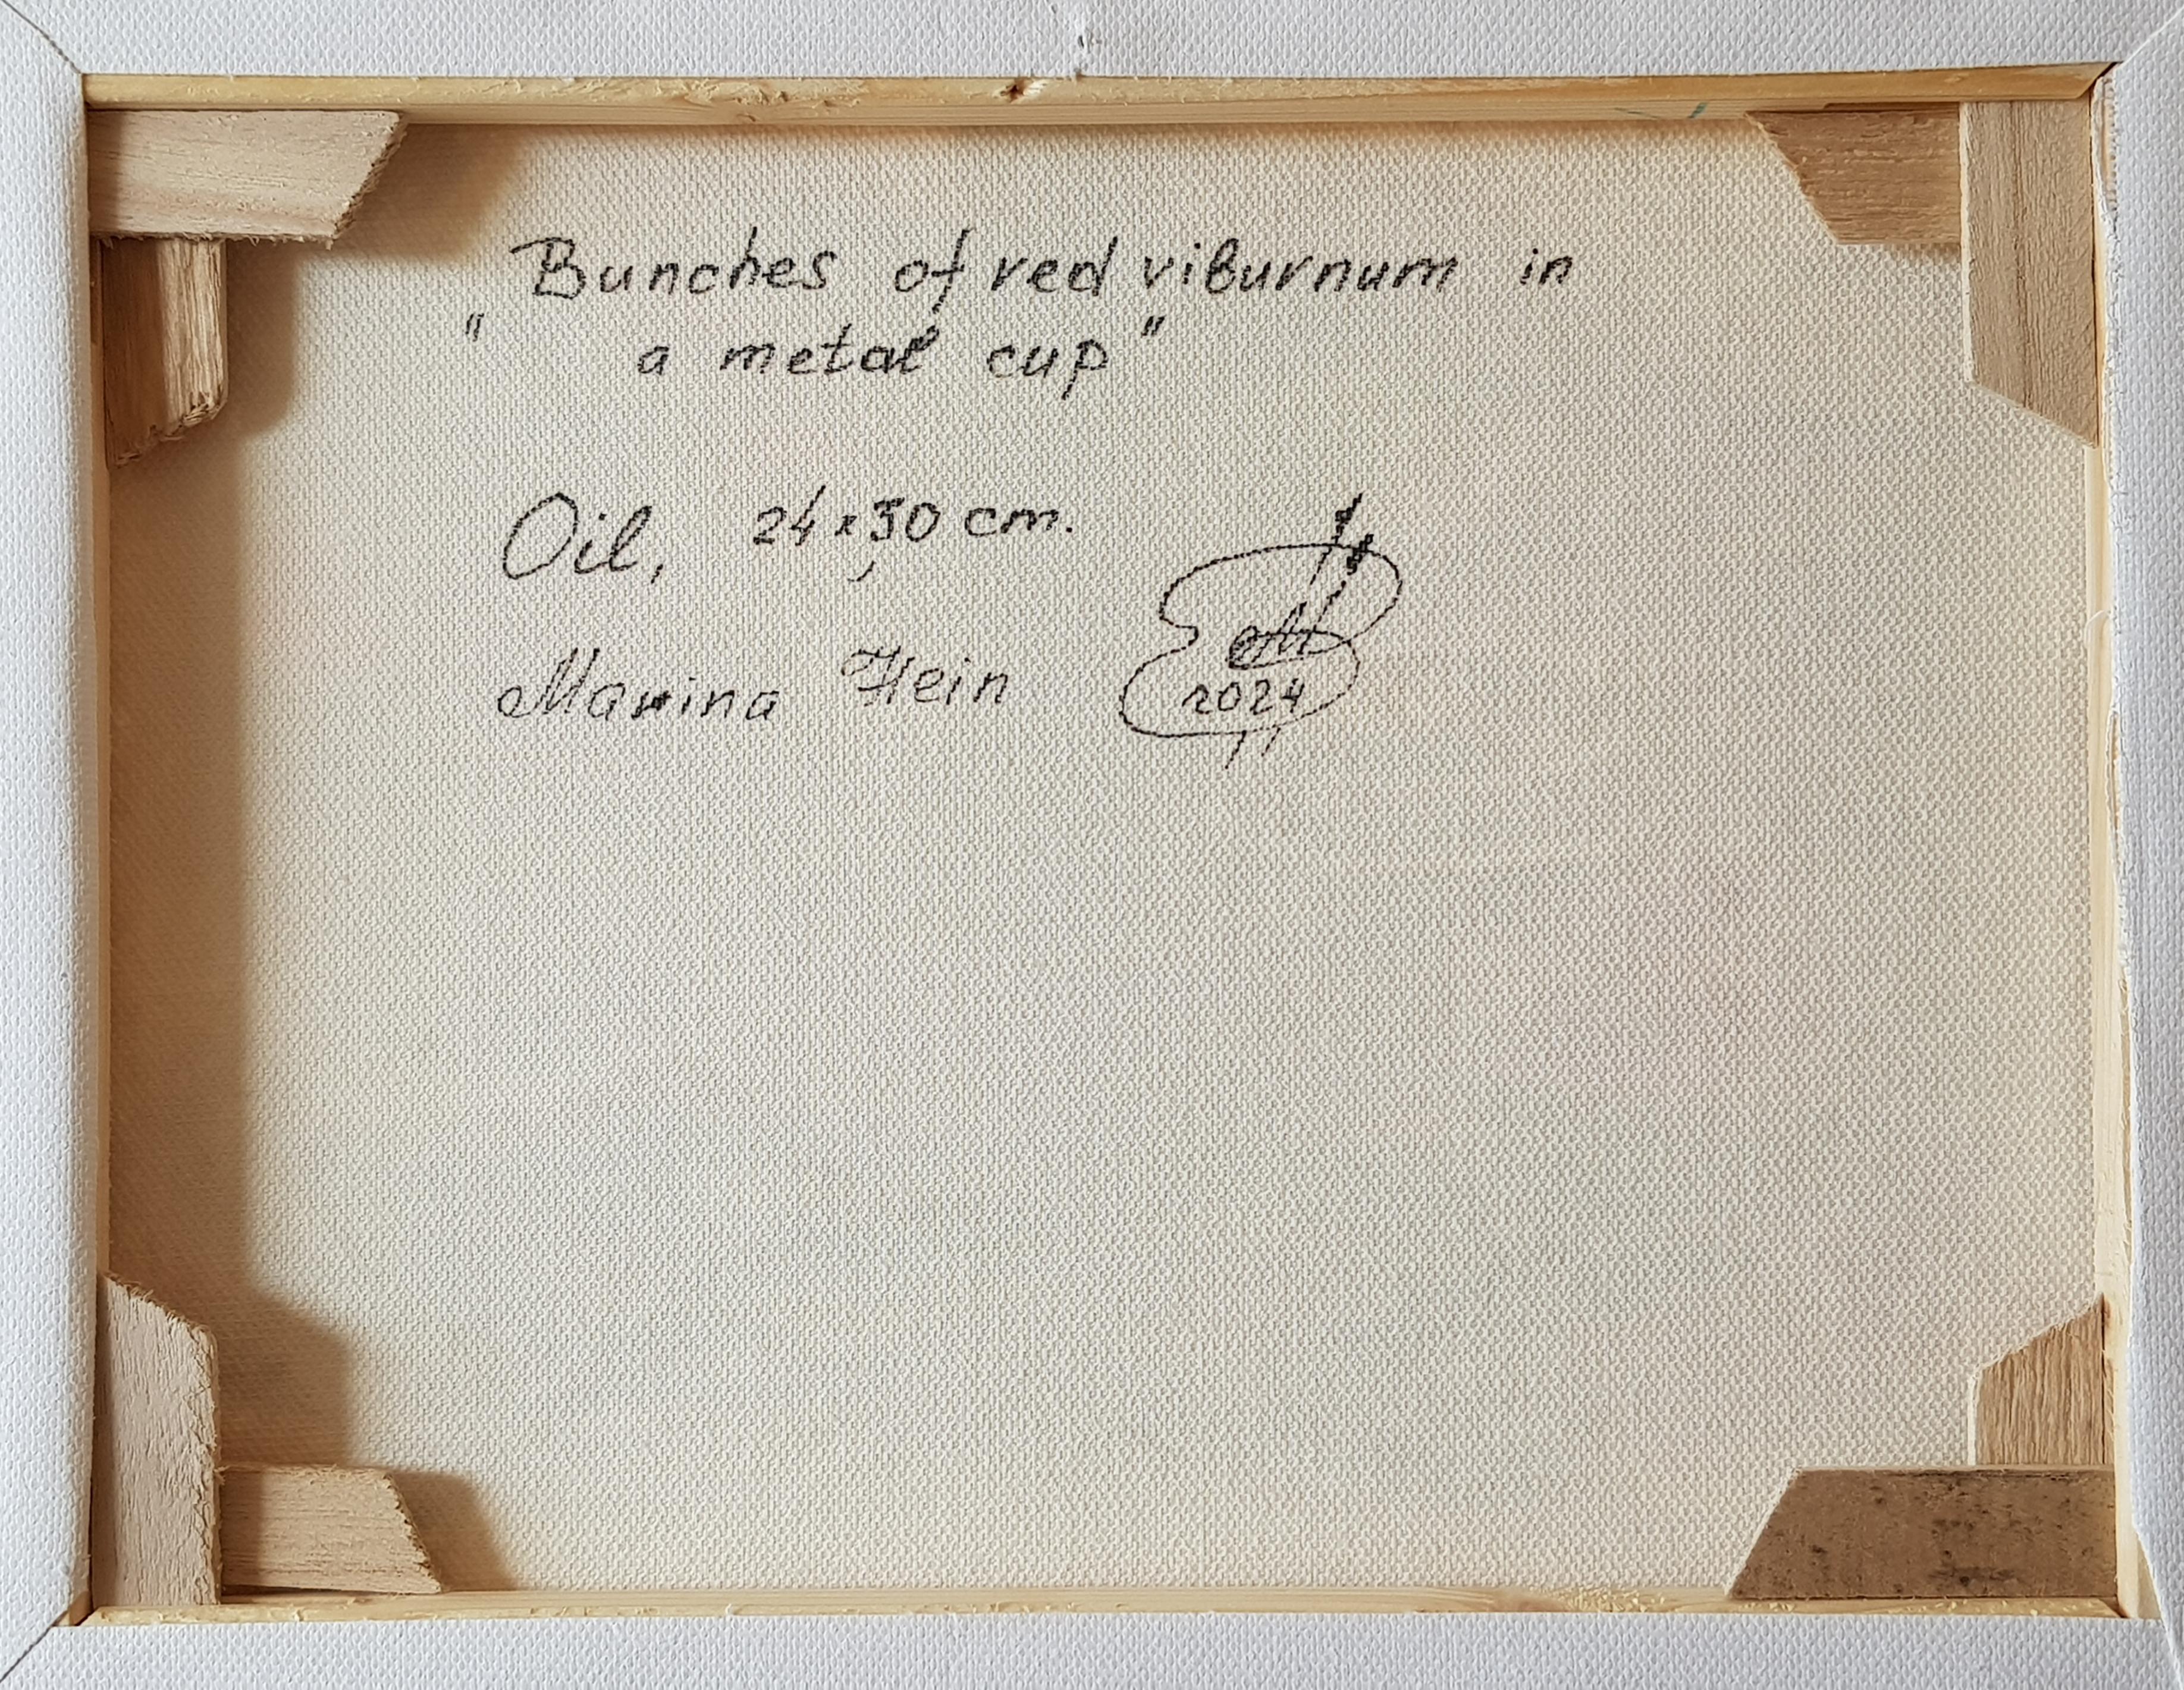 "Bunches of red viburnum in
a metal cup"
Oil, 24x30 cm.
Marina Hein
M
2024